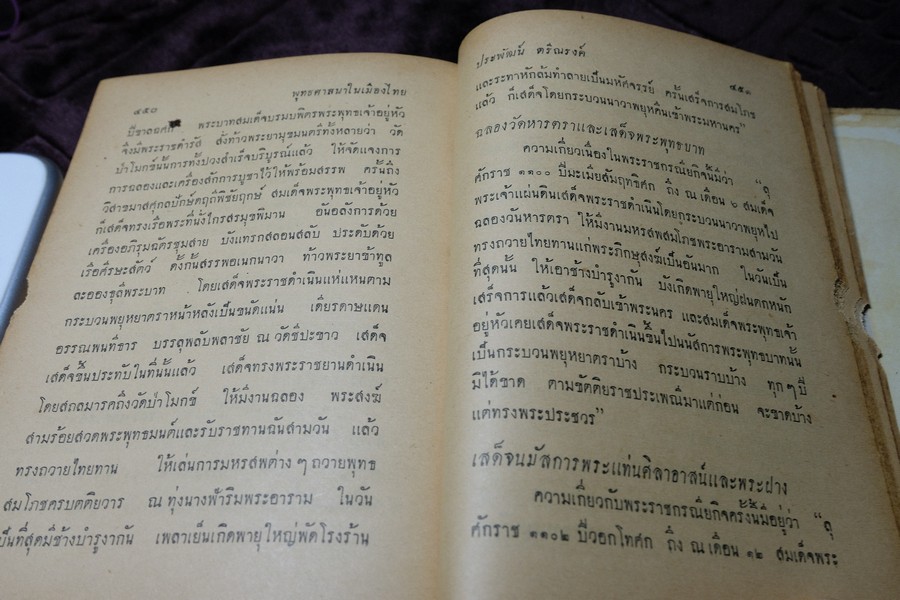 พุทธศาสนาในเมืองไทย
๔๕๐
ปีขาลศก พระบาทสมเด็จบรมบพิตรพระพุทธเจ้าอยู่หัว
จึงมีพระราชดำรัส สั่งท้าวพระยามุขมนตรีทั้งหลายว่า วัด
ป่าโมกข์นั้นการทั้งปวงสำเร็จบริบูรณ์แล้ว ให้จัดแจงการ
การฉลองและเครื่องสักการบูชาไว้ให้พร้อมสรรพ ครั้นถึง
วิสาขมาสศุกลปักษ์ดฤถีพิชัยฤกษ์ สมเด็จพระพุทธเจ้าอยู่หัว
ก็เสด็จทรงเรือพระที่นั่งไกรสรมุขพิมาน อันอลังการด้วย
เครื่องอภิรุมฉัตรชุมสาย บังแทรกสลอนสลับ ประดับด้วย
เรือศีรษะสัตว์ ดั้งกันสรรพอเนกนาวา ท้าวพระยาข้าทูล
ละอองธุลีพระบาท โดยเสด็จพระราชดำเนินแห่แหนตาม
กระบวนพยุหยาตราหน้าหลังเป็นขนัดแน่น เดียรดาษแดน
อรรณพนทีธาร บรรลุพลับพลาชัย ณ วัดชีปะขาว เสด็จ
เสด็จขึ้นประทับในที่นั้นแล้ว เสด็จทรงพระราชยานดำเนิน
โดยสถลมารคถึงวัดป่าโมกข์ ให้มีงานฉลอง พระสงฆ์
สามร้อยสวดพระพุทธมนต์และรับราชทานฉันสามวัน แล้ว
ทรงถวายไทยทาน ให้เล่นการมหรสพต่าง ๆ ถวายพุทธ
สมโภชครบตติยวาร ณ ทุ่งนางฟ้าริมพระอาราม ในวัน
เป็นที่สุดมีช้างบำรูงากัน เพลาเย็นเกิดพายุใหญ่พัดโรงร้าน
ประพัฒน์ ตรีณรงค์
๔๕๑
และระทาหักล้มทำลายเป็นมหัศจรรย์ ครั้นเสร็จการสมโภช
แล้ว ก็เสด็จโดยกระบวนนาวาพยุหคืนเข้าพระมหานคร”
ฉลองวัดหารตราและเสด็จพระพุทธบาท
ความเกี่ยวเนื่องในพระราชกรณียกิจนี้มีว่า “ลุ
ศักราช ๑๑๐๐ ปีมะเมียสัมฤทธิศก ถึง ณ เดือน ๖ สมเด็จ
พระเจ้าแผ่นดินเสด็จพระราชดำเนินโดยกระบวนนาวาพยุหไป
ฉลองวันหารตรา ให้มีงานมหรสพสมโภชพระอารามสามวัน
ทรงถวายไทยทานแก่พระภิกษุสงฆ์เป็นอันมาก ในวันเป็น
ที่สุดนั้น ให้เอาช้างบำรูงากัน บังเกิดพายุใหญ่ฝนตกหนัก
เสร็จการแล้วเสด็จกลับเข้าพระนคร และสมเด็จพระพุทธเจ้า
อยู่หัวเคยเสด็จพระราชดำเนินขึ้นไปนมัสการพระพุทธบาทนั้น
เป็นกระบวนพยุหยาตราบ้าง กระบวนราบบ้าง ทุก ๆ ปี
มิได้ขาด ตามขัตติยราชประเพณีมาแต่ก่อน จะขาดบ้าง
แต่ทรงพระประชวร”
เสด็จนมัสการพระแท่นศิลาอาสน์และพระฝาง
ความเกี่ยวกับพระราชกรณียกิจครั้งนี้มีอยู่ว่า “ลุ
ศักราช ๑๑๐๒ ปีวอกโทศก ถึง ณ เดือน ๑๒ สมเด็จพระ